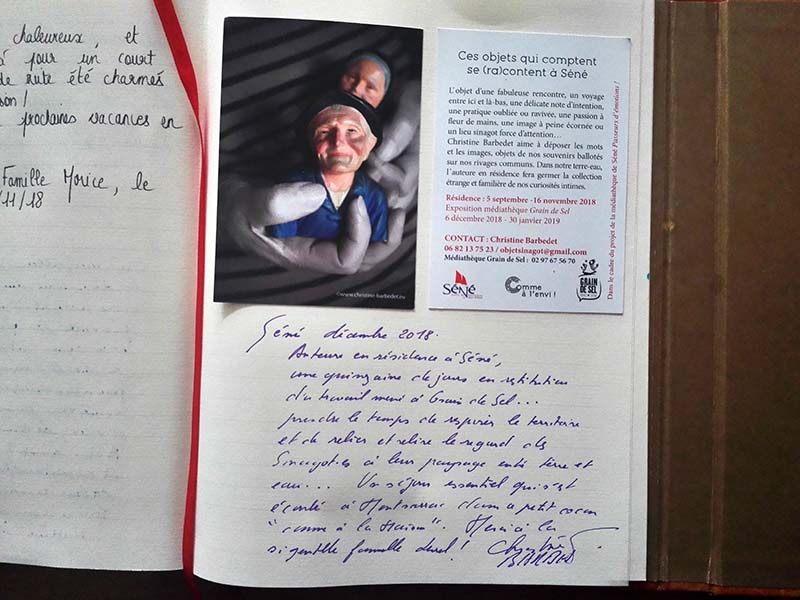 chaleureux, et
à pour un court
été charmés
prochaines vacances en
Famille Morice, le
/11/18
©www.christine-barbedet.eu
Ces objets qui comptent
se (ra)content à Séné
L'objet d'une fabuleuse rencontre, un voyage
entre ici et là-bas, une délicate note d'intention,
une pratique oubliée ou ravivée, une passion à
fleur de mains, une image à peine écornée ou
un lieu sinagot force d'attention…
Christine Barbedet aime à déposer les mots
et les images, objets de nos souvenirs ballotés
sur nos rivages communs. Dans notre terre-eau,
l'auteure en résidence fera germer la collection
étrange et familière de nos curiosités intimes.
Résidence : 5 septembre -16 novembre 2018
Exposition médiathèque Grain de Sel
6 décembre 2018 - 30 janvier 2019
CONTACT : Christine Barbedet
06 82 13 75 23 / objetsinagot@gmail.com
Médiathèque Grain de Sel : 02 97 67 56 70
SéNé
Comme
à l'envi !
GRAIN
DE SEL
Dans le cadre du projet de la médiathèque de Séné d'émotions !
Séné décembre 2018.
Auteure en résidence à Séné,
une quinzaine de jours en restitution
du travail mené à Grain de Sel...
prendre le temps de respirer le territoire
et de relier et relire le regard des
Sinagot.es à leur paysage entre terre et
eau... Un séjour essentiel qui s'est
à Montsarrac dans ce petit cocon
"comme à la Maison". Merci à la
si gentille famille !
Christine
BARBEDET